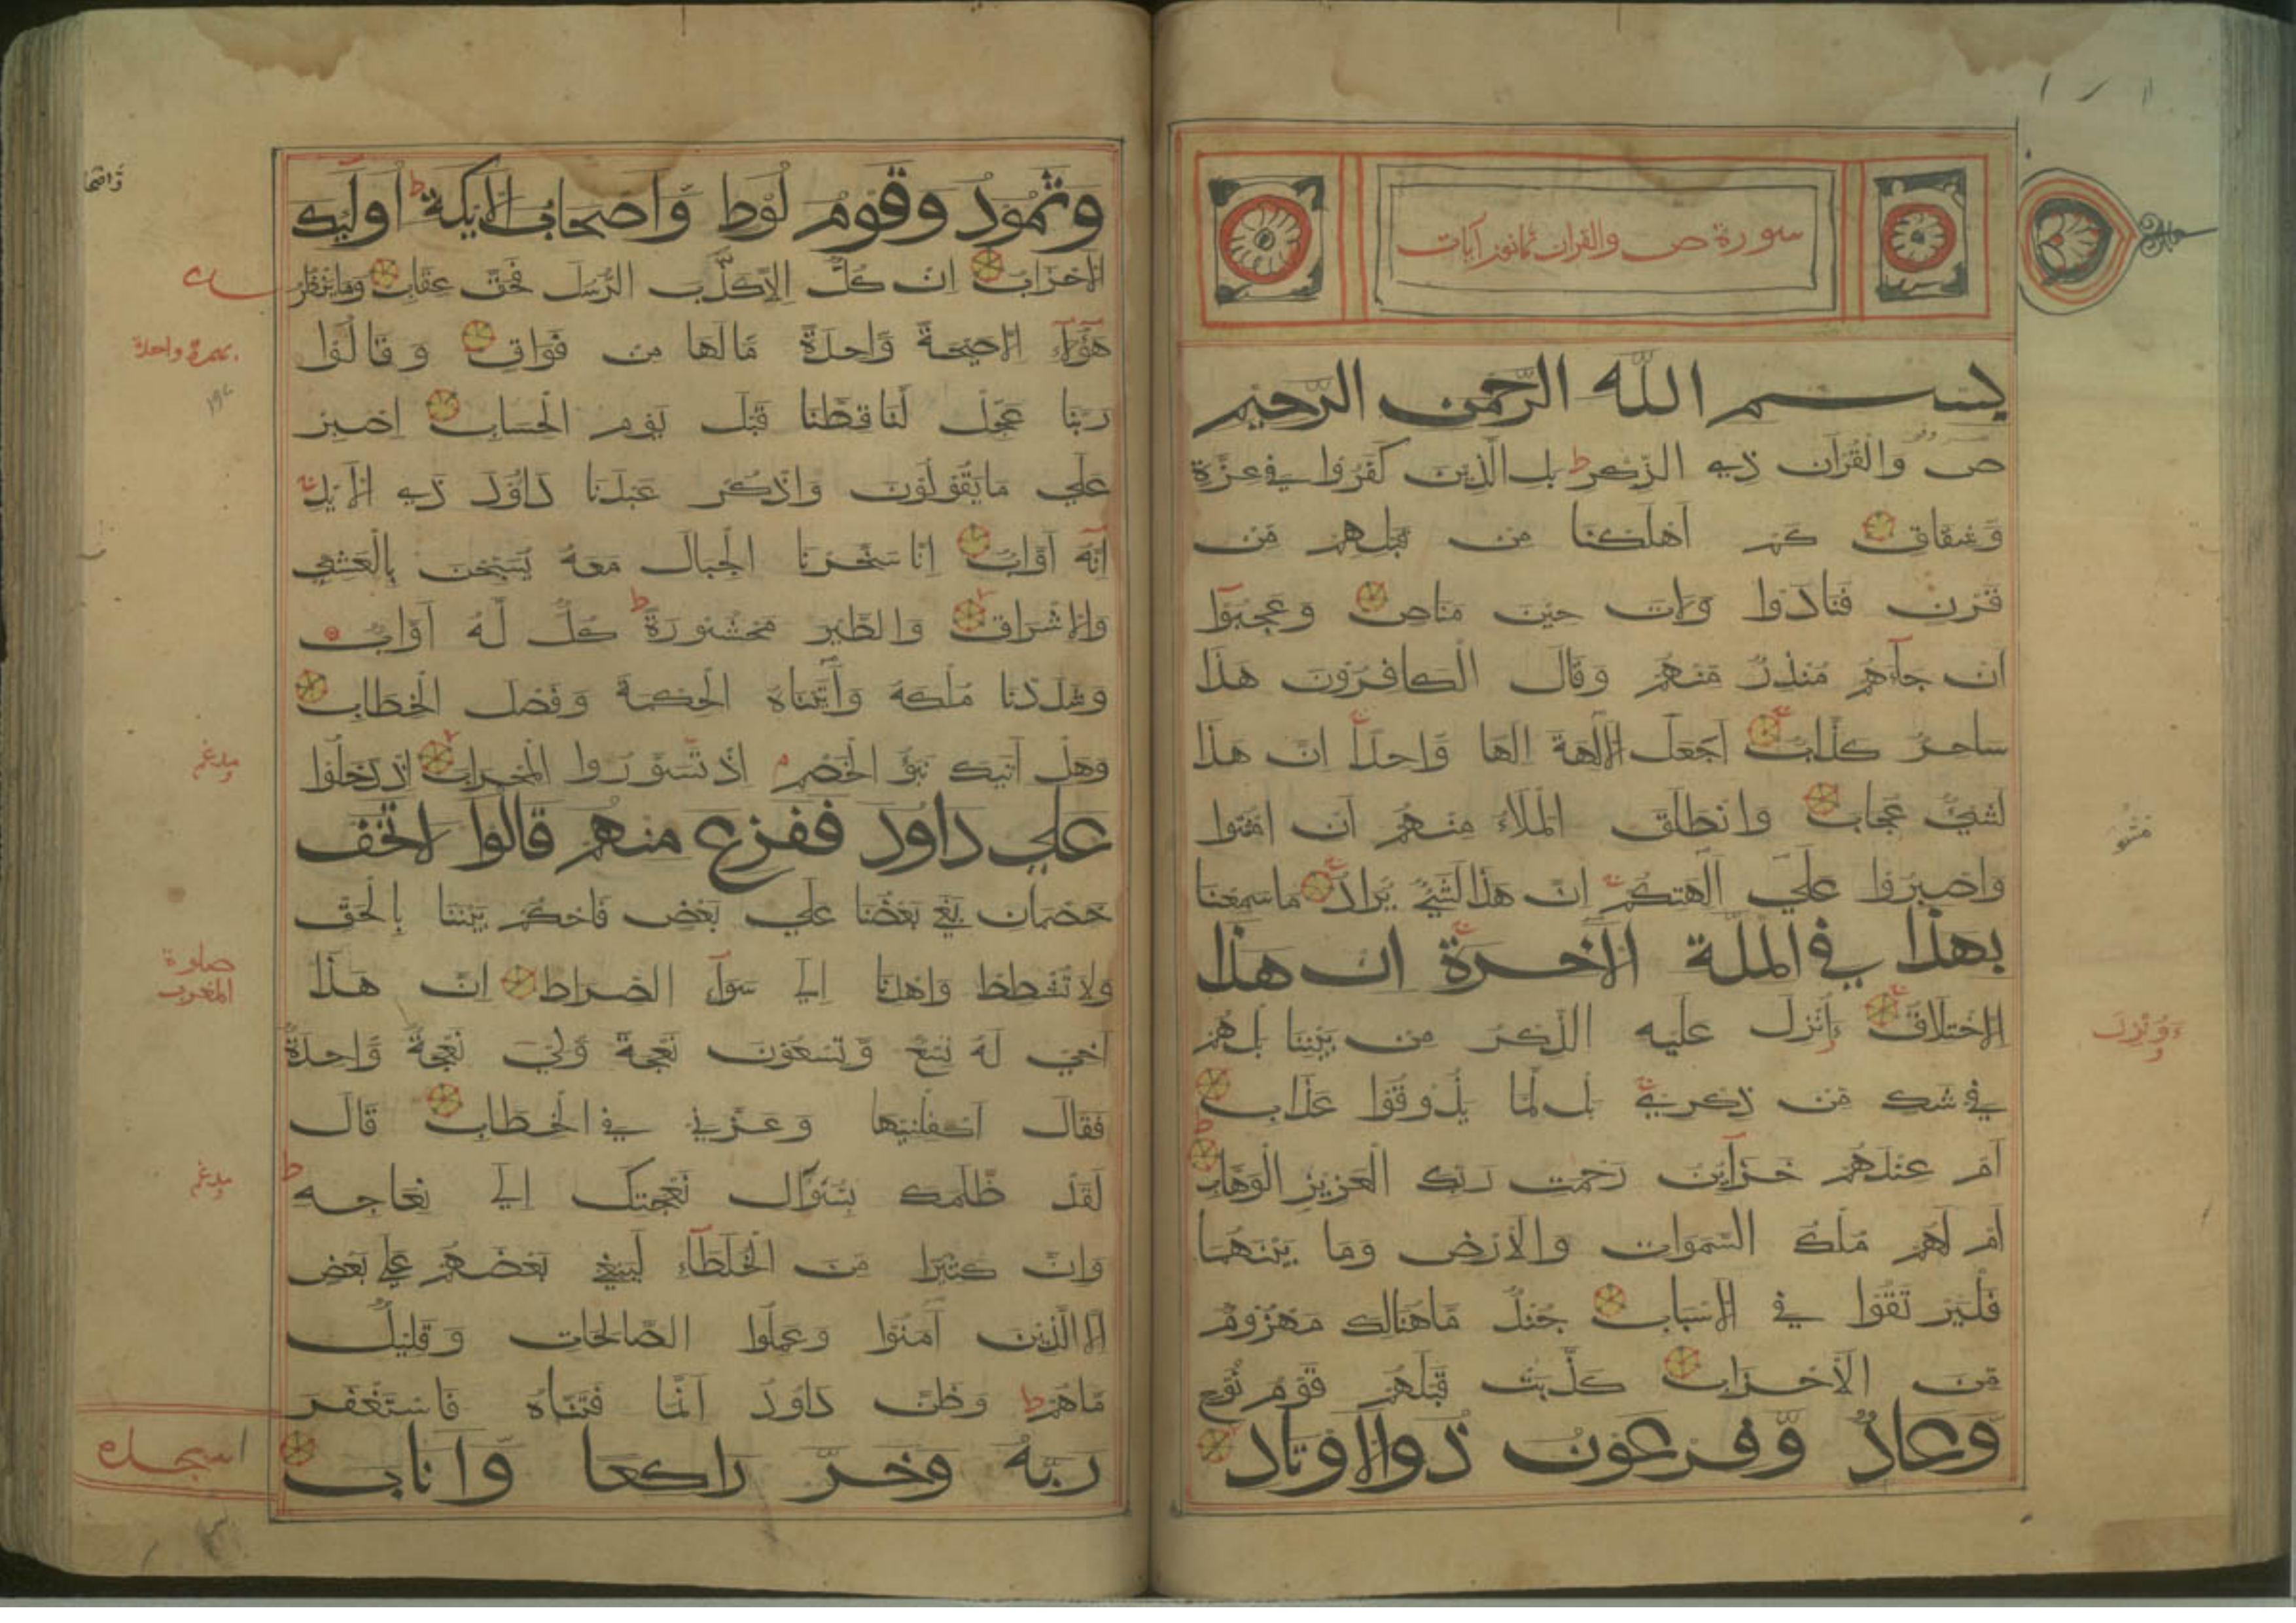 سورة ص والقران ثمانون آيات
بسم الله الرحمن الرحيم
ص وَالْقُرْآن ذِي الذِّكْر ط بل الَّذِين كَفَرُوا فِي عِزَّة
وَّشِقَاق كَم أَهْلَكْنَا مِن قَبْلِهِم مِّن
قَرْن فَنَادَوْا وَلات حِيْن مَنَاص وَعَجِبُوٓا
ان جَآءَهُم مُنْذِرٌ مِّنْهُم وَقَالَ الْكَافِرُونَ هَذَا
سَاحِرٌ كَذَّابٌ أَجَعَلَ الآلِهَةَ الها وَّاحِدًا انّ هذا
لَشَيْءٌ عُجَاب وَانْطَلَقَ الْمَلَاءُ مِنْهُم أَن امْشُوا
وَاصْبِرُوا عَلَى آلِهَتِكُم انّ هَذَا لَشَيْءٌ يُرَادُ مَا سَمِعْنَا
بهذا في الملّة الآخرة ان هذا
الا اخْتِلَاقٌ ءَأُنْزِلَ عَلَيْه الذِّكْرُ مِن بَيْنِنَا بَلْ هُم
فِي شَكٍ مِّن ذِكْرِي بَل لَّمَّا يَذُوقُوا عَذَاب
أَم عِنْدَهُم خَزَآئِن رَحْمَت رَبِّك الْعَزِيزِ الْوَهَّاب
أَم لَهُم مُّلْكُ السَّمَوَات وَالْأَرْض وَمَا بَيْنَهُمَا
فَلْيَرْتَقُوا فِي الاسْبَاب جُنْدٌ مَّا هُنَالِكَ مَهْزُومٌ
مِّن الْأَحْزَاب كَذَّبَت قَبْلَهُم قَوْمُ نُوْحٍ
وّعادٌ وّفرعون ذو الاوتاد
ءَوُنْزِلَ
وثمود وقوم لوط وّاصحاب الايكة ط أوليك
الاحْزَابُ ان كُلٌّ الا كَذَّبَ الرُّسُلَ فَحَقَّ عِقَاب وَمَا يَنْظُرُ
هَؤُلَآءِ الا صَيْحَةً وَّاحِدَةً مَّا لَهَا مِن فَوَاق وَقَالُوا
رَبَّنَا عَجِّلْ لَّنَا قِطَّنَا قَبْلَ يَوْمِ الْحِسَاب اصْبِر
عَلَى مَا يَقُولُونَ وَاذْكُر عَبْدَنَا دَاوُدَ ذِي الْأَيْدِ
انَّه أَوَّابٌ إِنَّا سَخَّرْنَا الْجِبَالَ مَعَهُ يُسَبِّحْنَ بِالْعَشِيِّ
وَالاشْرَاق وَالطَّيْرَ مَحْشُورَةً ط كُلٌّ لَّهُ أَوَّابٌ
وَشَدَدْنَا مُلْكَهُ وَآتَيْنَاهُ الْحِكْمَةَ وَفَصْلَ الْخِطَاب
وَهَلْ أَتَيكَ نَبَؤُا الْخَصْمِ م اذْ تَسَوَّرُوا الْمِحْرَاب اذْ دَخَلُوا
على داود ففزع منهم قالوا لا تخف
خَصْمَان بَغَى بَعْضُنَا عَلَى بَعْض فَاحْكُم بَيْنَنَا بِالْحَقّ
وَلا تُشْطِط وَاهْدِنَا الى سَوَآء الصِّرَاط انّ هَذَا
أَخِي لَهُ تِسْعٌ وَّتِسْعُونَ نَعْجَةً وَّلِيَ نَعْجَةٌ وَّاحِدَةٌ
فَقَالَ أَكْفِلْنِيهَا وَعَزَّنِي فِي الْخِطَاب قَالَ
لَقَدْ ظَّلَمَكَ بِسُؤَالِ نَعْجَتِكَ الى نِعَاجِه ط
وَانّ كَثِيرًا مِّن الْخُلَطَآءِ لَيَبْغِي بَعْضُهُم عَلَى بَعْض
الا الَّذِيْنَ آمَنُوا وَعَمِلُوا الصَّالِحَات وَقَلِيلٌ
مَّا هُم ط وَظَنّ دَاوُدُ أَنَّمَا فَتَنَّاهُ فَاسْتَغْفَرَ
ربّه وخرّ راكعا وّاناب
واحدة
مدغم
صلوة
المغرب
مدغم
اسجده